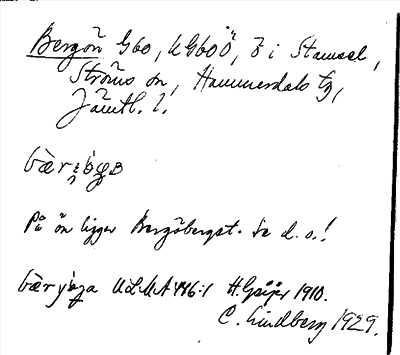 Bergön G60, UG60Ö, ö i Stamsel,
Ströms sn, Hammerdals tg,
Jämtl. l.
På ön ligger Bergöbergst. Se d. o.!
ULMA 446:1 H. Geijer 1910.
C. Lindberg 1929.